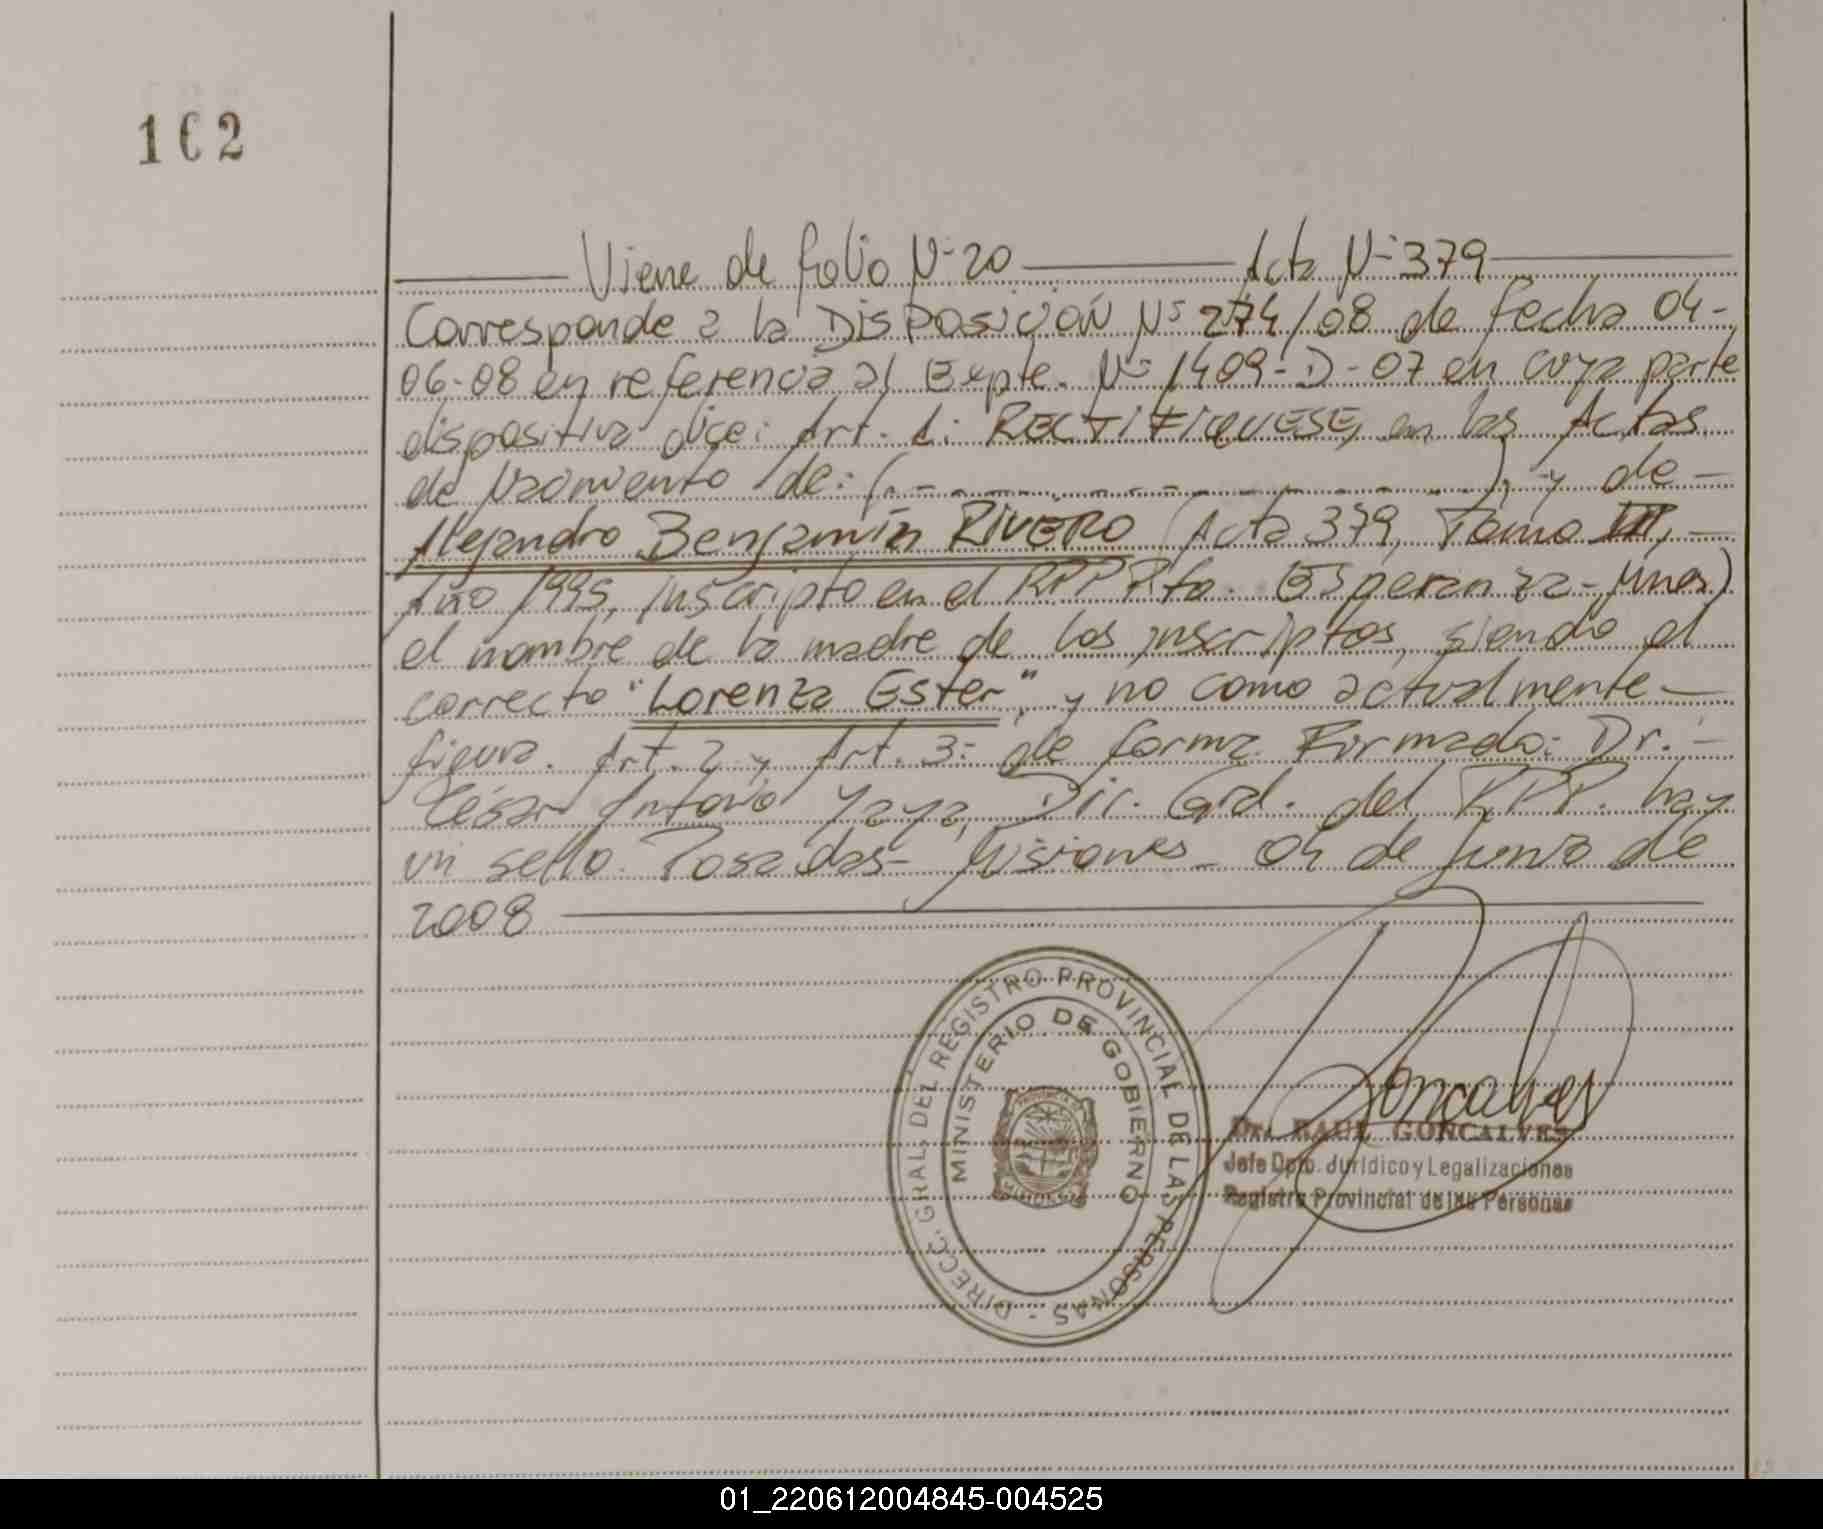 162
Viene de folio Nº 20 Acta Nº 379
Corresponde a la DISPOSICIÓN Nº 274/08 de fecha 04-
06-08 en referencia al Expte. Nº 1409-D-07 en cuya parte
dispositiva dice: Art. 1: RECTIFIQUESE, en las Actas
de Nacimiento de: (. - - - - - - - - - - ), y de -
Alejandro Benjamín RIVERO (Acta 379, Tomo III, -
Año 1995, inscripto en el RPP Pto. Esperanza - Mnes)
el nombre de la madre de los inscriptos, siendo el
correcto "Lorenza Ester", y no como actualmente -
figura. Art. 2 y Art. 3: de forma. Firmado: Dr. -
César Antonio Yaya, Dir. Gral. del RPP. hay
un sello. Posadas - Misiones - 04 de Junio de
2008
DIRECC. GRAL. DEL REGISTRO PROVINCIAL DE LAS PERSONAS -
MINISTERIO DE GOBIERNO
PROVINCIA DE
MISIONES
Goncalves
Dr. RAUL GONCALVES
Jefe Dpto. Jurídico y Legalizaciones
Registro Provincial de las Personas
01_220612004845-004525